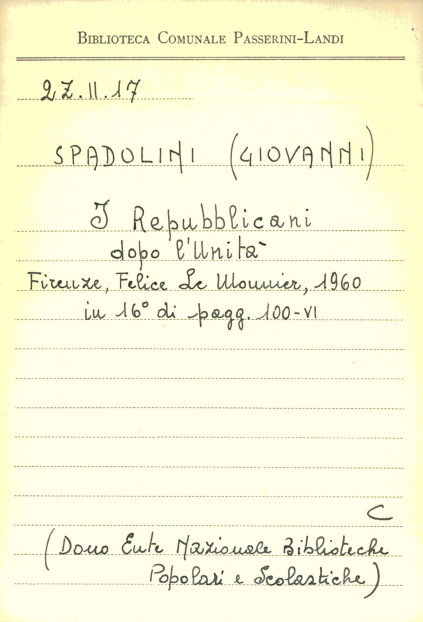 BIBLIOTECA COMUNALE PASSERINI-LANDI
2Z.II.17
SPADOLINI (GIOVANNI)
I Repubblicani
dopo l'Unità
Firenze, Felice Le Monnier, 1960
in 16° di pagg. 100-VI
C
(Dono Ente Nazionale Biblioteche
Popolari e Scolastiche)